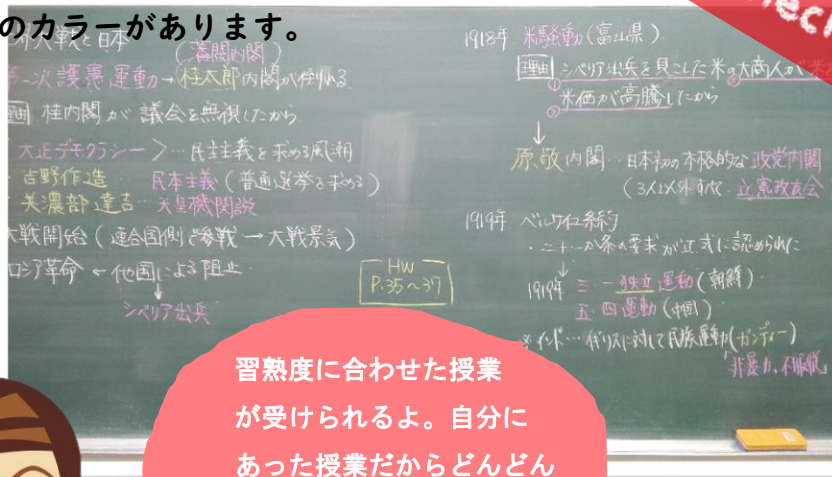 のカラーがあります。
界大戦と日本
(藩閥内閣)
第一次護憲運動→桂太郎内閣が倒れる
理由 桂内閣が議会を無視したから
大正デモクラシー＞…民主主義を求める風潮
吉野作造 民本主義(普通選挙を求める)
美濃部達吉…天皇機関説
大戦開始(連合国側で参戦→大戦景気)
ロシア革命←他国による阻止
↓
シベリア出兵
HW
P.35~37
1918年 米騒動(富山県)
理由 シベリア出兵を見こした米の大商人が
米価が高騰したから
↓
原敬内閣…日本初の本格的な政党内閣
(3人以外すべて立憲政友会
1919年 ベルサイユ条約
・二十一か条の要求が正式に認められた
1919年 三・一独立運動(朝鮮)
五・四運動(中国)
※インド…イギリスに対して民族運動(ガンディー)
「非暴力、不服従」
習熟度に合わせた授業
が受けられるよ。自分に
あった授業だからどんどん